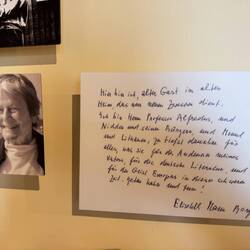 Hier bin ich, alter Gast im alten
Heim das nun neuen Zwecken dient.
Ich bin Herrn Professor
Nidden und seinen Bürgern, und Memel
und Litauen, zu tiefst dankbar für
alles, was sie für das Andenken meines
Vaters, für die deutsche Literatur, und
für den Geist Europas in dieser schweren
Zeit getan haben und tun!
Elisabeth Mann Borgese